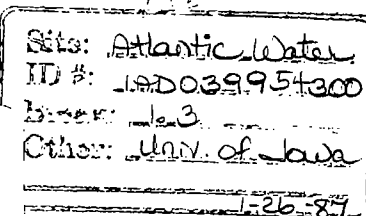 Site: Atlantic Water
ID #: IAD039954300
Break: 1.3
Other: Univ. of Iowa
1-26-87